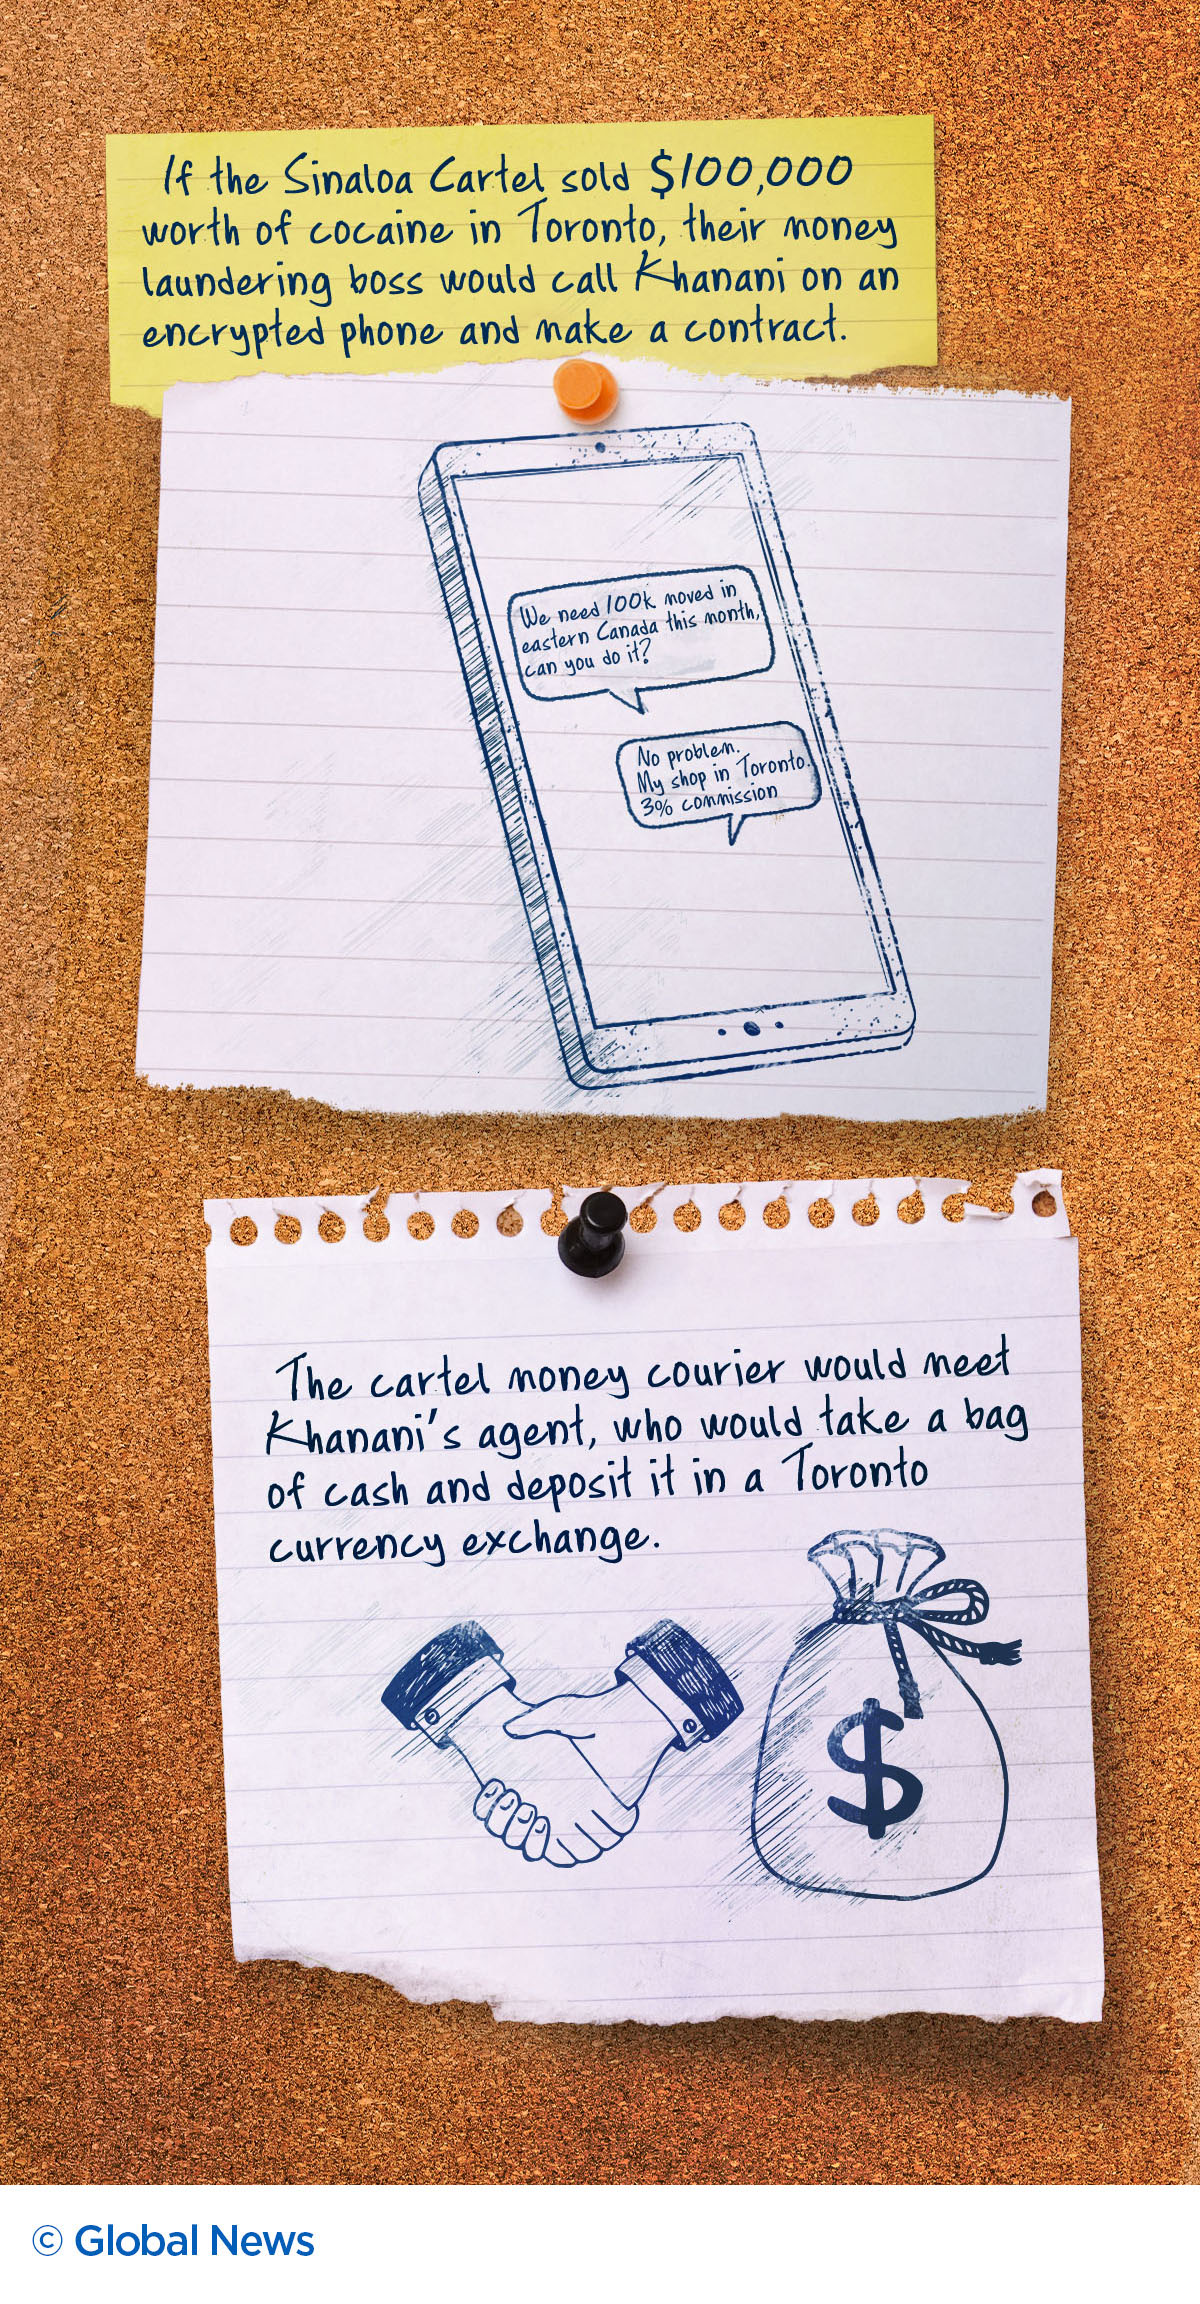 If the Sinaloa Cartel sold $100,000
worth of cocaine in Toronto, their money
laundering boss would call Khanani on an
encrypted phone and make a contract.
We need 100k moved in
eastern Canada this month,
can you do it?
No problem.
My shop in Toronto.
3% commission
The cartel money courier would meet
Khanani's agent, who would take a bag
of cash and deposit it in a Toronto
currency exchange.
$
© Global News